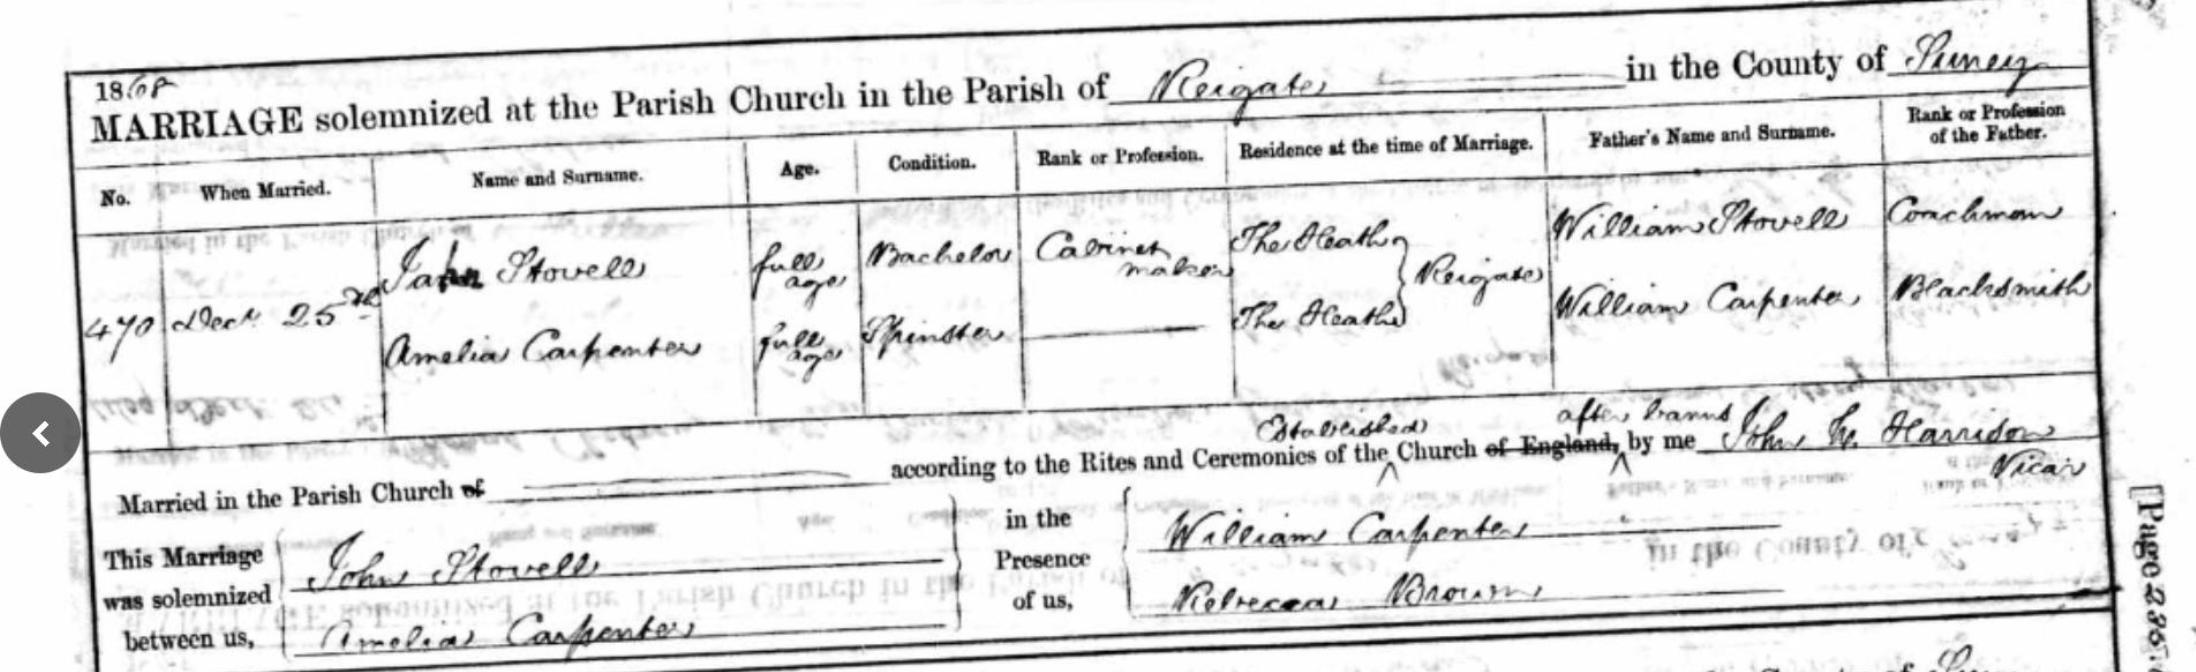 1868
MARRIAGE solemnized at the Parish Church in the Parish of Reigate in the County of Surrey
No. When Married. Name and Surname. Age. Condition. Rank or Profession. Residence at the time of Marriage. Father's Name and Surname. Rank or Profession of the Father.
470 Decr 25th
John Stovell full age Bachelor Cabinet maker The Heath William Stovell Coachman
Reigate
Amelia Carpenter full age Spinster The Heath William Carpenter Blacksmith
Married in the Parish Church of according to the Rites and Ceremonies of the Established Church of England, after banns by me John N. Harrison
Vicar
This Marriage was solemnized between us,
John Stovell
Amelia Carpenter
in the Presence of us,
William Carpenter
Rebecca Brown
[Page 236